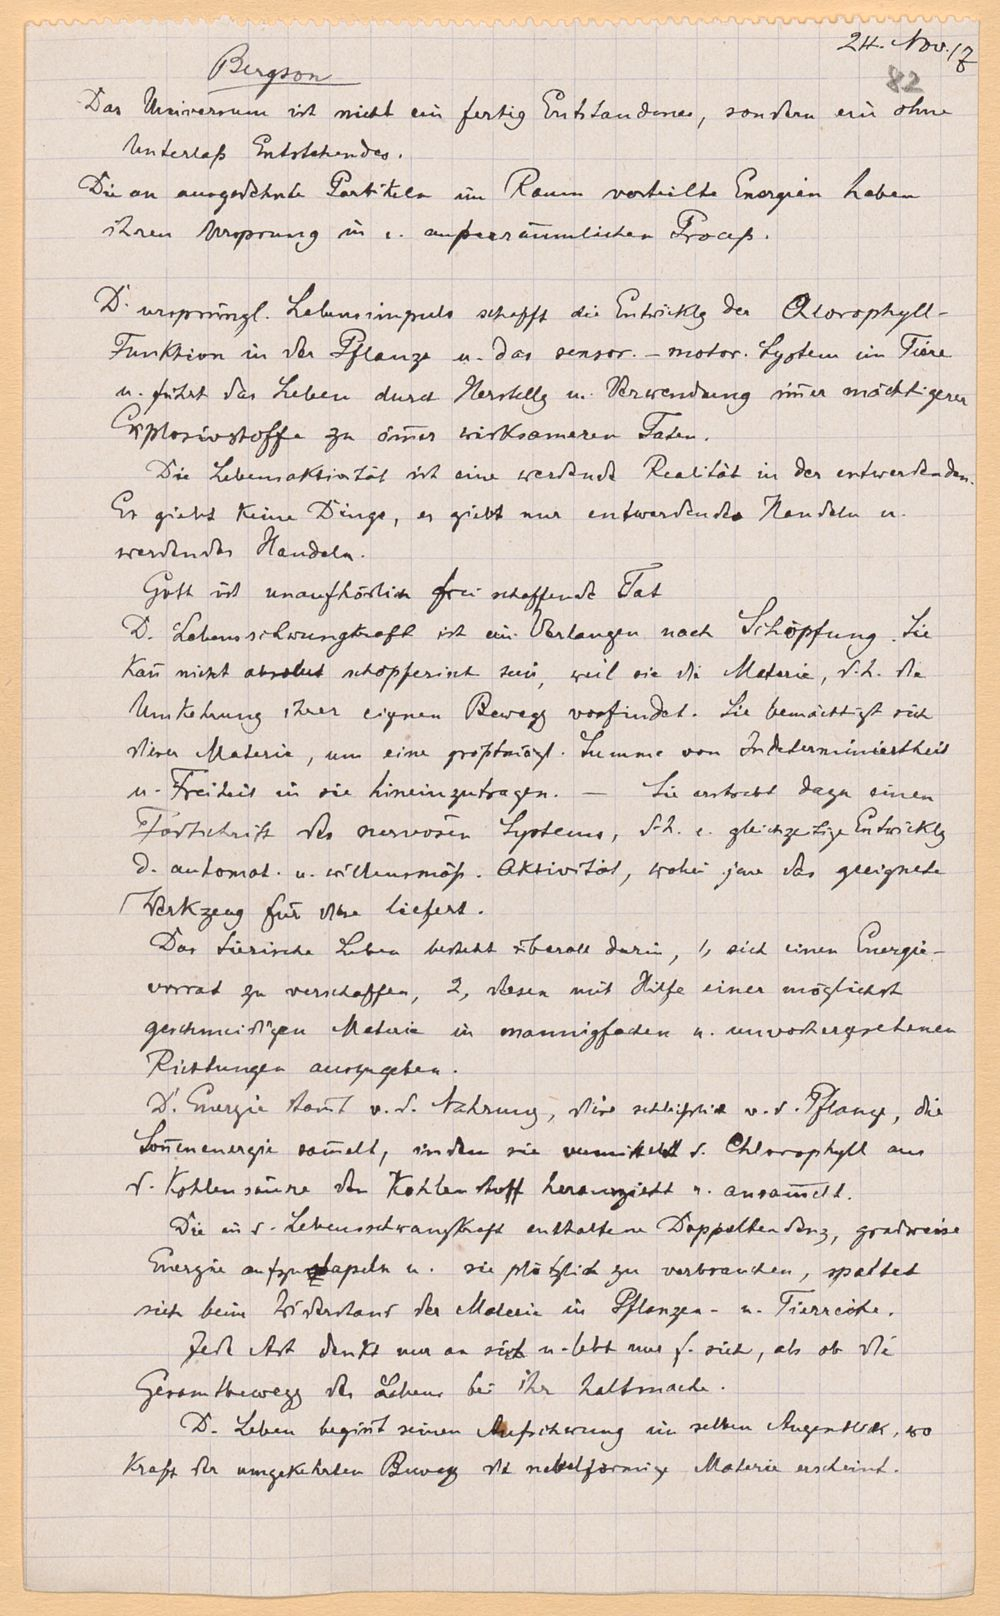 24. Nov. 17
82
Bergson
Das Universum ist nicht ein fertig Entstandenes, sondern ein ohne
Unterlaß Entstehendes.
Die an ausgedehnte Partikeln im Raum verteilte Energien haben
ihren Ursprung in e. außerräumlichen Proceß.
D. ursprüngl. Lebensimpuls schafft die Entwicklg der Chlorophyll-
Funktion in der Pflanze u. das sensor. - motor. System im Tiere
u. führt das Leben durch Herstellg u. Verwendung im̅er mächtigerer
Explosivstoffe zu im̅er wirksameren Taten.
Die Lebensaktivität ist eine werdende Realität in der entwerdenden.
Es giebt keine Dinge, es giebt nur entwerdendes Handeln u.
werdendes Handeln.
Gott ist unaufhörlich frei schaffende Tat
D. Lebensschwungkraft ist ein Verlangen nach Schöpfung. Sie
kan̅ nicht absolut schöpferisch sein, weil sie die Materie, d.h. die
Umkehrung ihrer eignen Bewegg vorfindet. Sie bemächtigt sich
dieser Materie, um eine großtmögl. Summe von Indeterminiertheit
u. Freiheit in sie hineinzutragen. — Sie erstrebt dazu einen
Fortschritt des nervösen Systems, d.h. e. gleichzeitige Entwicklg
d. automat. u. willensmäß. Aktivität, wobei jene das geeignete
Werkzeug für diese liefert.
Das tierische Leben besteht überall darin, 1, sich einen Energie-
vorrat zu verschaffen, 2, diesen mit Hilfe einer möglichst
geschmeidigen Materie in mannigfachen u. unvorhergesehenen
Richtungen auszugeben.
D. Energie stam̅t v. d. Nahrung, diese schließlich v. d. Pflanze, die
Son̅enenergie sam̅elt, indem sie vermittelst d. Chlorophyll aus
d. Kohlensäure den Kohlenstoff herauszieht u. ansam̅elt.
Die in d. Lebensschwungkraft enthaltene Doppeltendenz, gradweise
Energie aufzustapeln u. sie plötzlich zu verbrauchen, spaltet
sich beim Widerstand der Materie in Pflanzen- u. Tierreiche.
Jede Art denkt nur an sich u. lebt nur f. sich, als ob die
Gesamtbewegg des Lebens bei ihr haltmache.
D. Leben begin̅t seinen Aufschwung im selben Augenblick, wo
kraft der umgekehrten Bewegg die nebelförmige Materie erscheint.